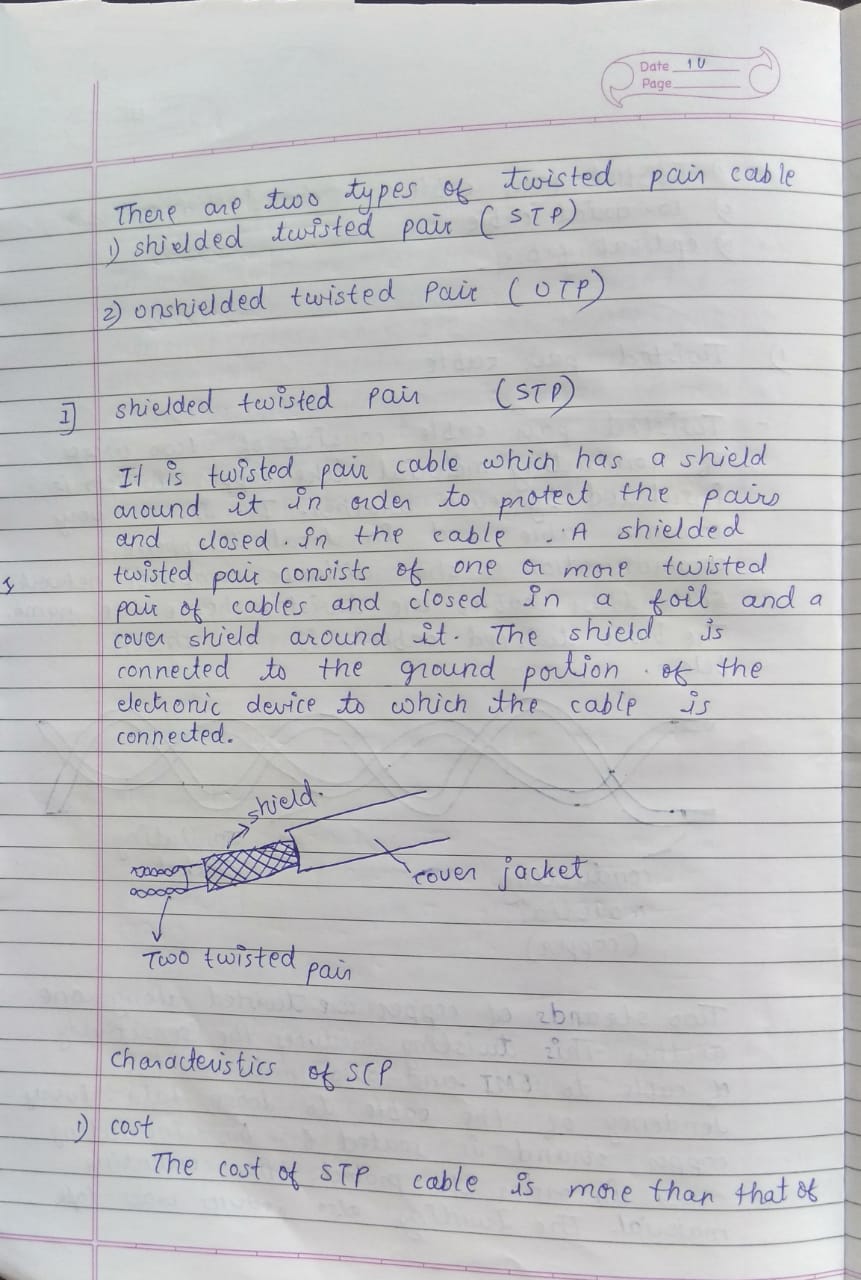 Date 10
Page
There are two types of twisted pair cable
1) shielded twisted pair (STP)
2) onshielded twisted Pair (OTP)
I] shielded twisted pair (STP)
It is twisted pair cable which has a shield
around it in order to protect the pairs
and closed. in the cable . A shielded
twisted pair consists of one or more twisted
pair of cables and closed in a foil and a
cover shield around it. The shield is
connected to the ground portion . of the
electronic device to which the cable is
connected.
shield.
cover jacket
Two twisted pair
characteristics of SCP
1) cost
The cost of STP cable is more than that of